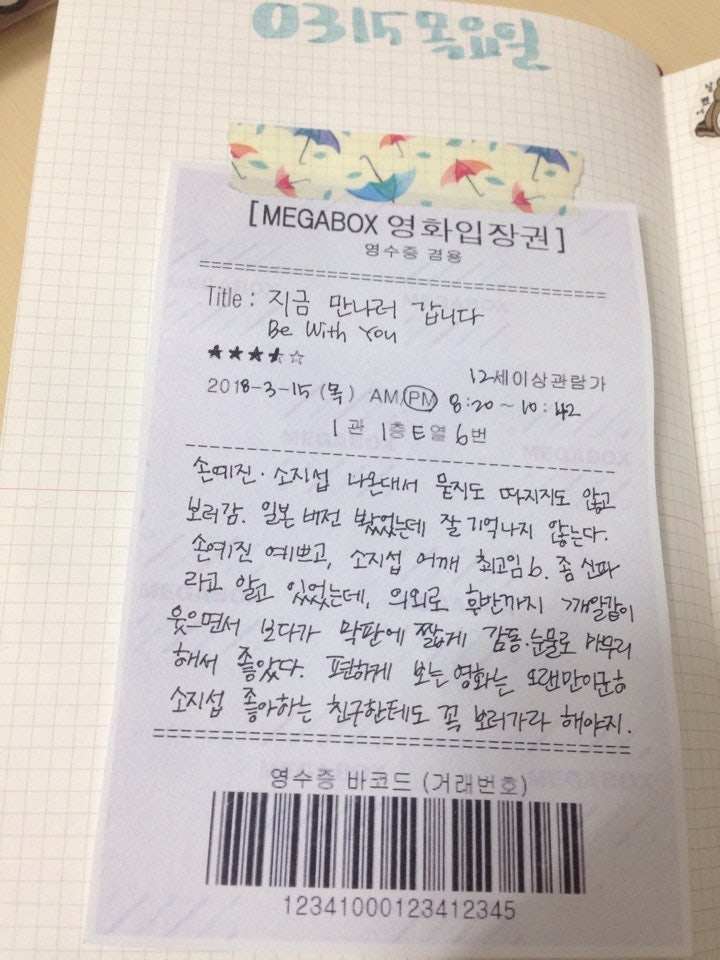 0315 목요일
[MEGABOX 영화입장권]
영수증 겸용
Title : 지금 만나러 갑니다
Be With You
★★★⯪☆
12세이상관람가
2018-3-15 (목) AM/PM 8:20 ~ 10:42
1 관 1층 E열 6번
손예진·소지섭 나온대서 묻지도 따지지도 않고
보러감. 일본 버전 봤었는데 잘 기억나지 않는다.
손예진 예쁘고, 소지섭 어깨 최고임b. 좀 신파
라고 알고 있었는데, 의외로 후반까지 개알같이
웃으면서 보다가 막판에 짧게 감동·눈물로 마무리
해서 좋았다. 편하게 보는 영화는 오랜만이군ㅎ
소지섭 좋아하는 친구한테도 꼭 보러가라 해야지.
영수증 바코드 (거래번호)
12341000123412345
MEGABOX
MEGABOX
MEGABOX
MEGABOX
MEGABOX